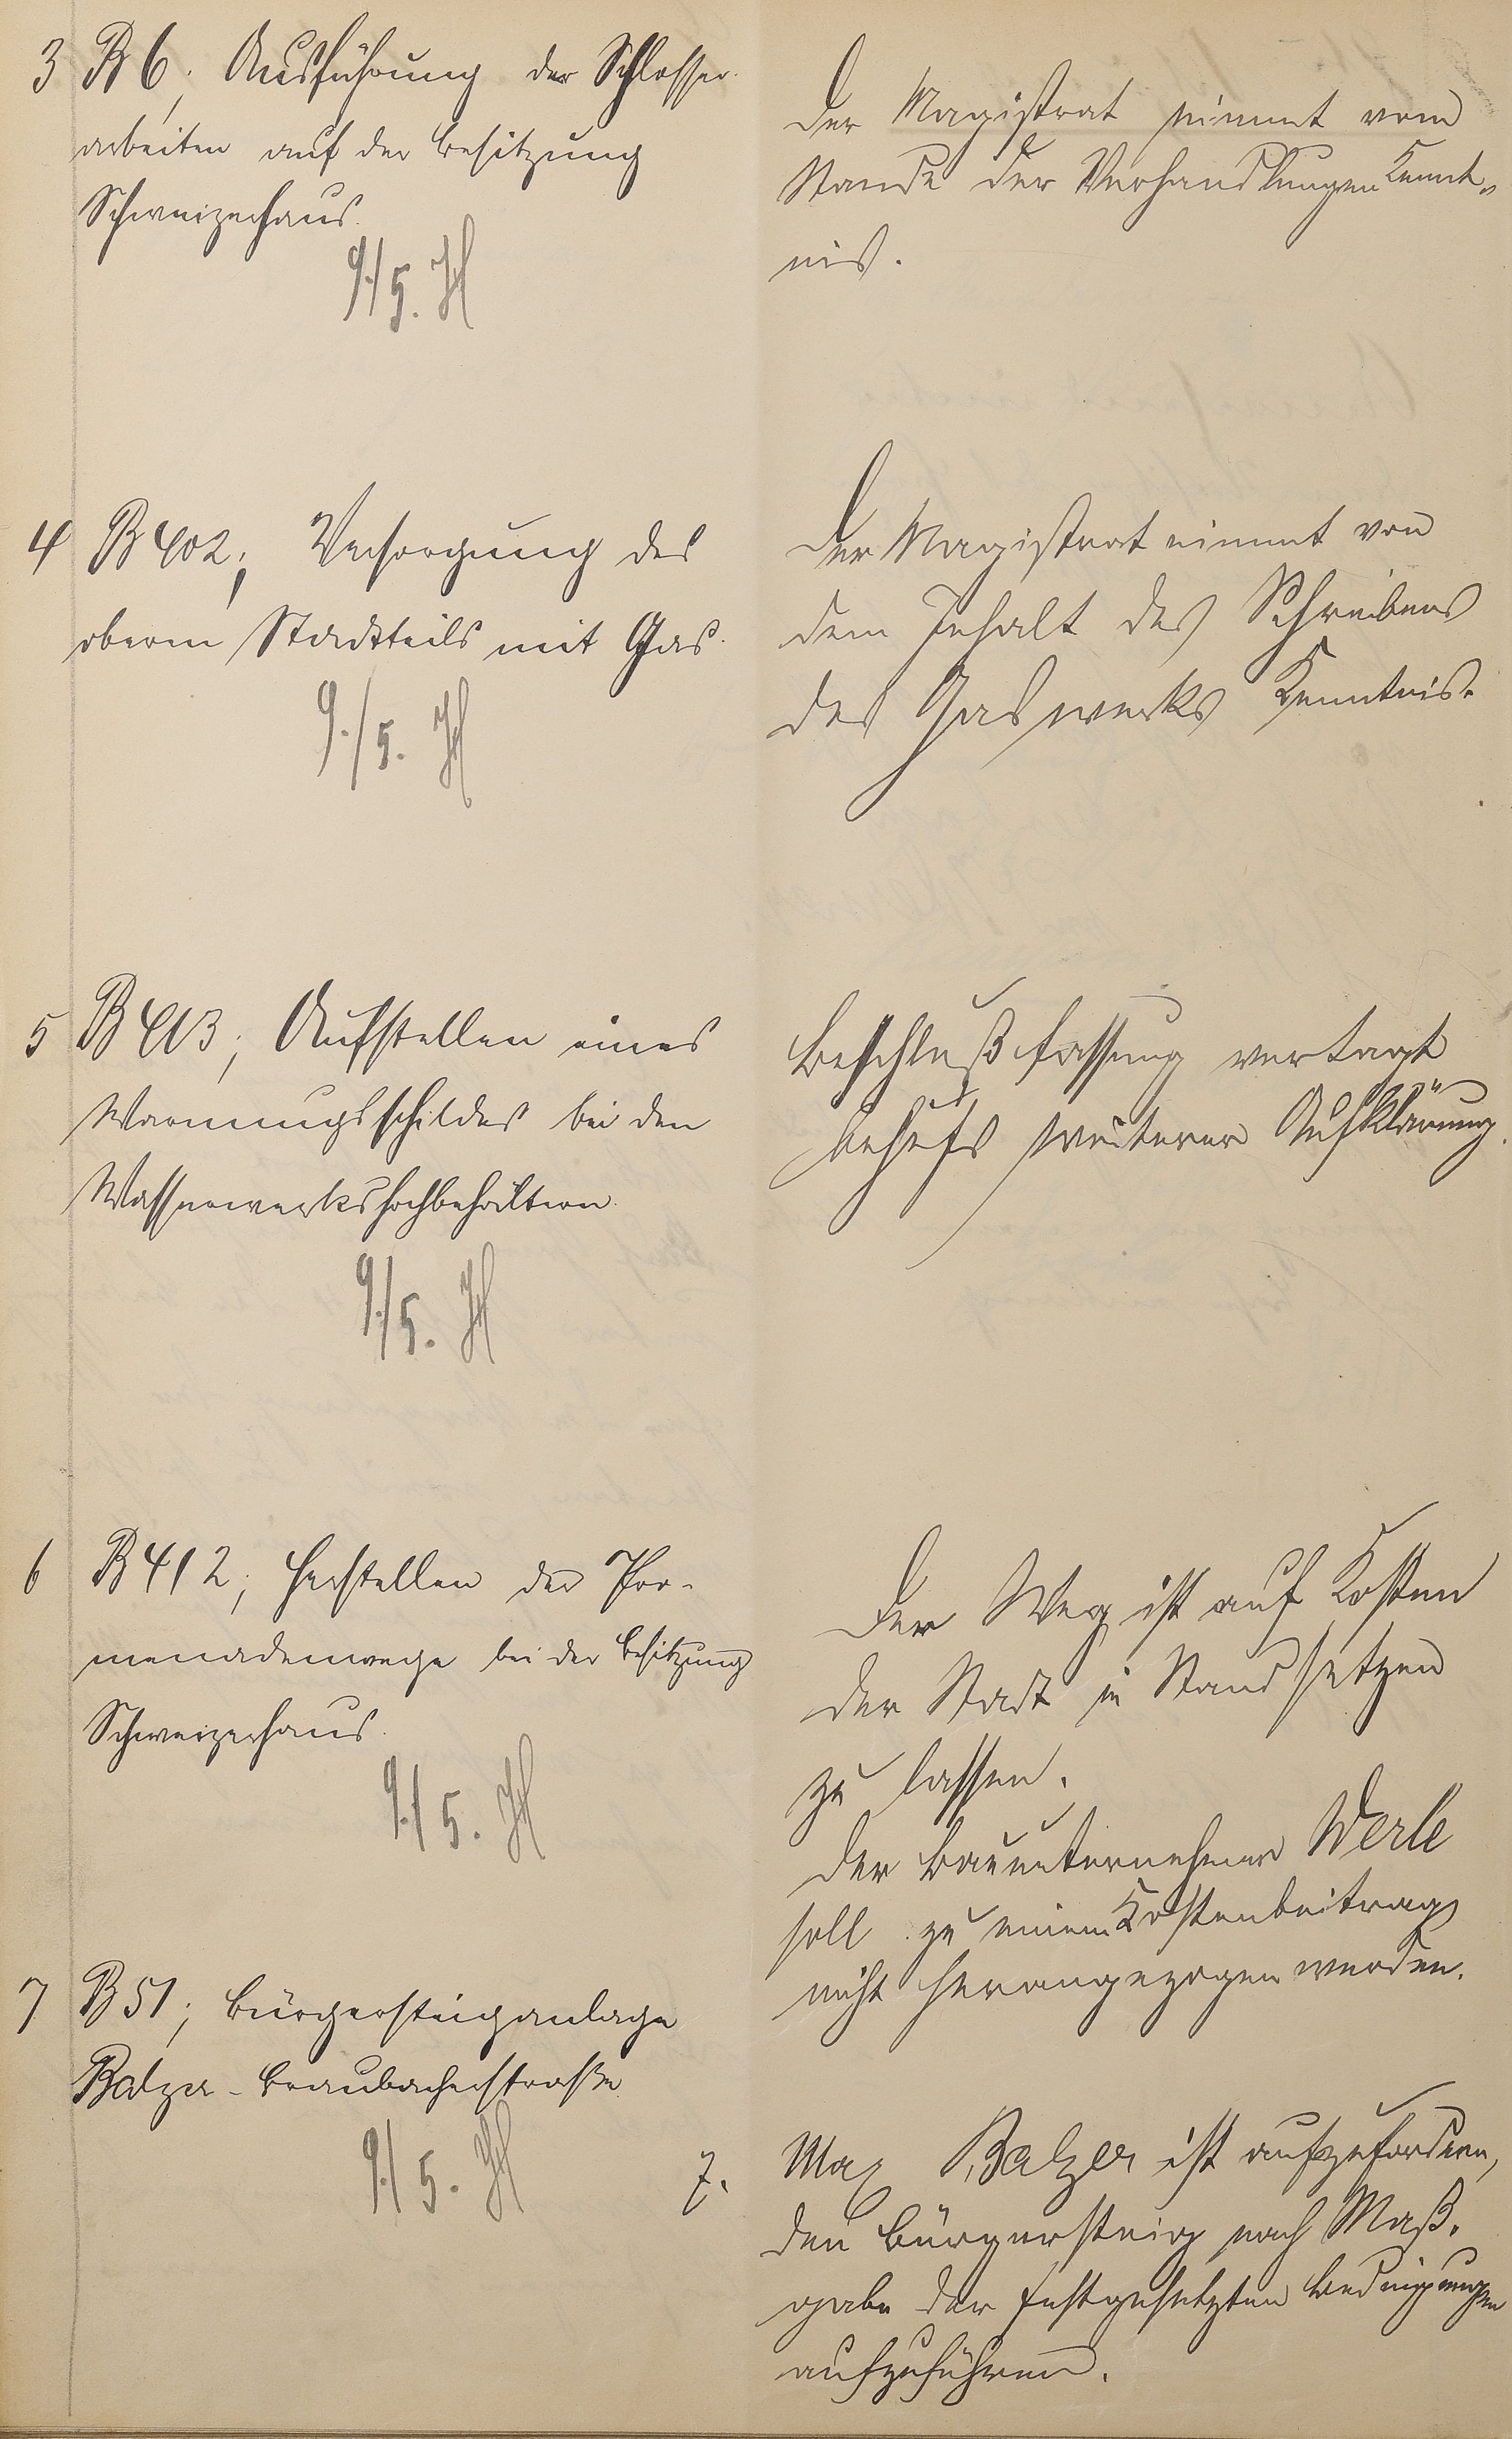 3 B 6; Ausführung der Schlosser-
arbeiten auf der Besitzung
Schweizerhaus.
9./5. H
Der Magistrat nimmt vom
Stande der Verhandlungen Kennt-
nis.
4 B 402; Versorgung des
oberen Stadtteils mit Gas.
9./5. H
Der Magistrat nimmt von
dem Inhalt des Schreibens
des Gaswerks Kenntnis.
5 B 413; Aufstellen eines
Warnungsschildes bei den
Wasserwerkshochbehältern.
9./5. H
Beschlußfassung vertagt
behufs weiterer Aufklärung.
6 B 412; Herstellen der Pro-
menadenwege bei der Besitzung
Schweizerhaus.
9./5. H
Der Weg ist auf Kosten
der Stadt in Stand setzen
zu lassen.
Der Bauunternehmer Werle
soll zu einem Kostenbeitrag
nicht herangezogen werden.
7 B 51; Bürgersteiganlage
Balzer - Braubacherstraße
9./5. H
7. Max Balzer ist aufzufordern,
den Bürgersteig nach Maß-
gabe der festgesetzten Bedingungen
auszuführen.